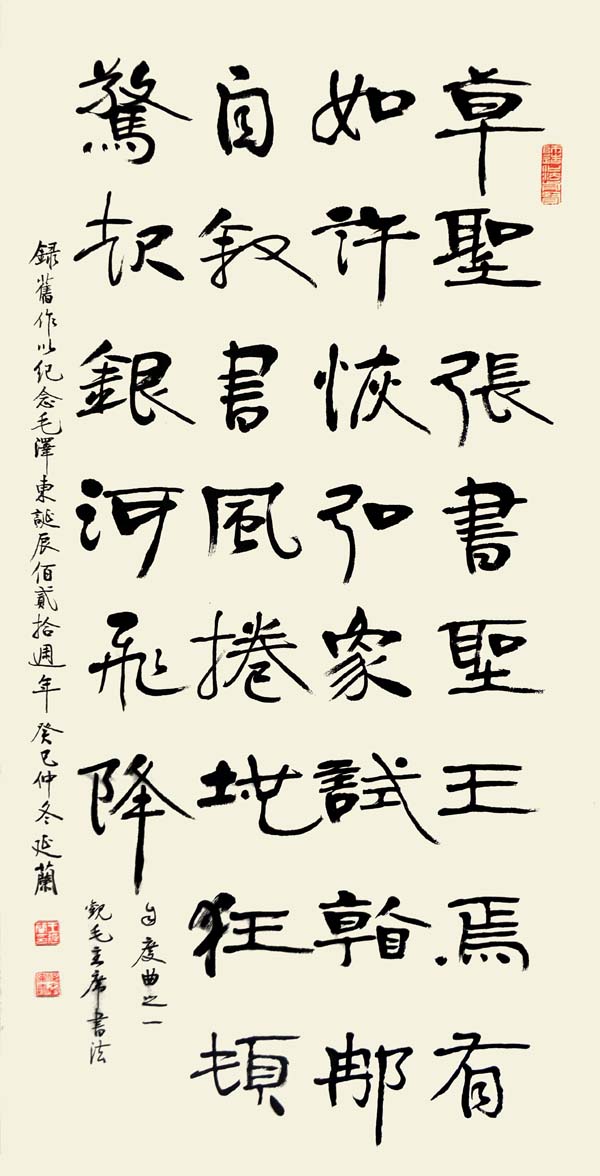 草聖張書聖王焉有
如許恢弘家試看那
自叙書風捲地狂頓
驚銀河飛降
自度曲之一
觀毛主席書法
録舊作以紀念毛澤東誕辰佰貳拾週年 癸巳仲冬延蘭